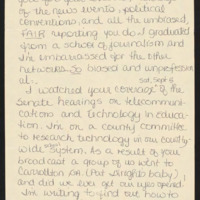 of the news events, political
conventions, and all the unbiased,
FAIR reporting you do. I graduated
from a school of journalism and
I'm embarrassed for the other
networks. So biased and unprofession-
al.
Sat, Sept 6
I watched your coverage of the
Senate hearings or telecommuni-
cations and technology in educa-
tion. I'm on a county committee
to research technology in our county-
wide system. As a result of your
broadcast a group of us went to
Carrollton GA. (Pat Wright's baby)
and did we ever get our eyes opened!
I'm writing to find out how to